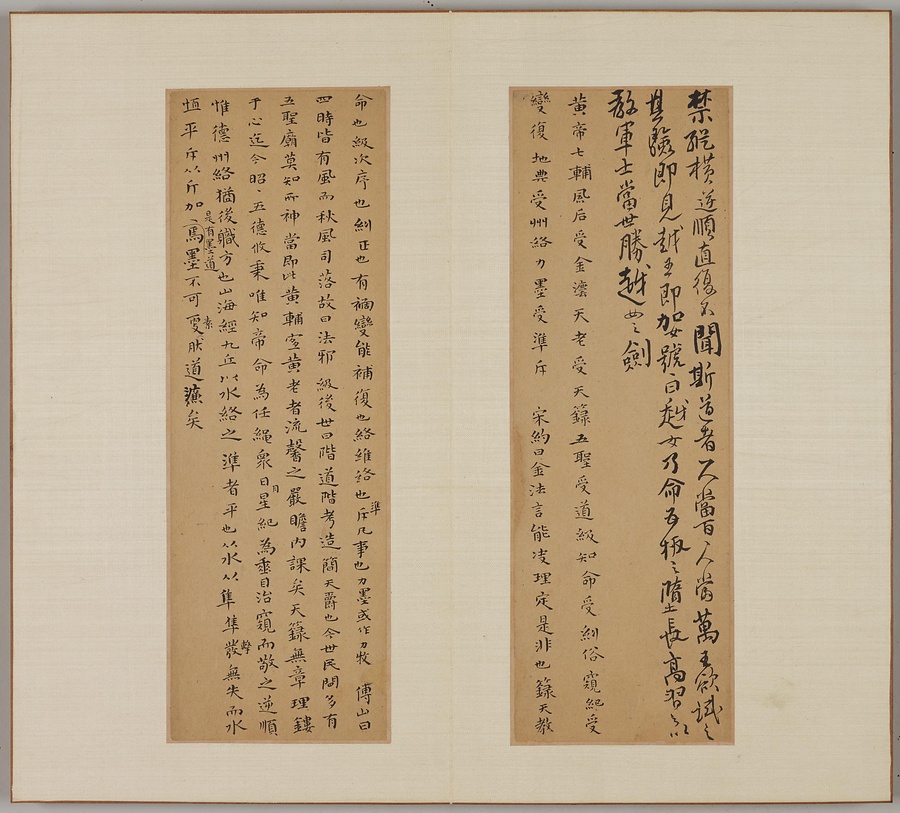 禁縱橫逆順直復不聞斯道者一人當百百人當萬王欲試之
其驗即見越王即加女號曰越女乃命五板之墮長高習之以
教軍士當世勝越女之劍
黃帝七輔風后受金法天老受天籙五聖受道級知命受糾俗窺紀受
變復地典受州絡力墨受準斥宋約曰金法言能決理定是非也籙天教
命也級次序也糾正也有禍變能補復也絡維絡也斥凡事也力墨或作力牧傅山曰
準
四時皆有風而秋風司落故曰法邪級後世曰階道階考造簡天爵也今世民間多有
五聖廟莫知所神當即此黃輔宣黃老者流馨之嚴瞻內課矣天籙無章理鏤
于心迄今昭〻五德攸秉唯知帝命為任繩衆日星紀為垂目治窺而敬之逆順
月
惟德州絡猶後職方也山海經九丘以水絡之準者平也以水以隼隼發無失而水
聲
恒平斥以斤加〻焉墨不可變狀道濂矣
是有墨道
素